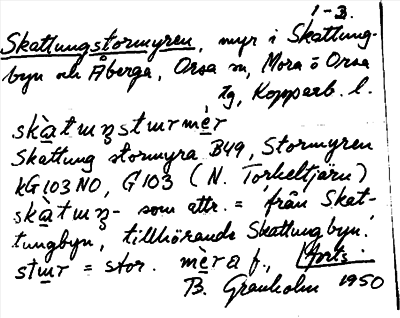 1-3.
Skattungstormyren, myr i Skattung-
byn och Åberga, Orsa sn, Mora o Orsa
tg, Kopparb. l.
skàtɯŋstɯrmèr
Skattung stormyra B49, Stormyren
KG103NO, G103 (N. Torkeltjärn)
skàtɯŋ- som attr. = från Skat-
tungbyn, tillhörande Skattungbyn.
stɯr = stor. mèra f., forts.
B. Granholm 1950